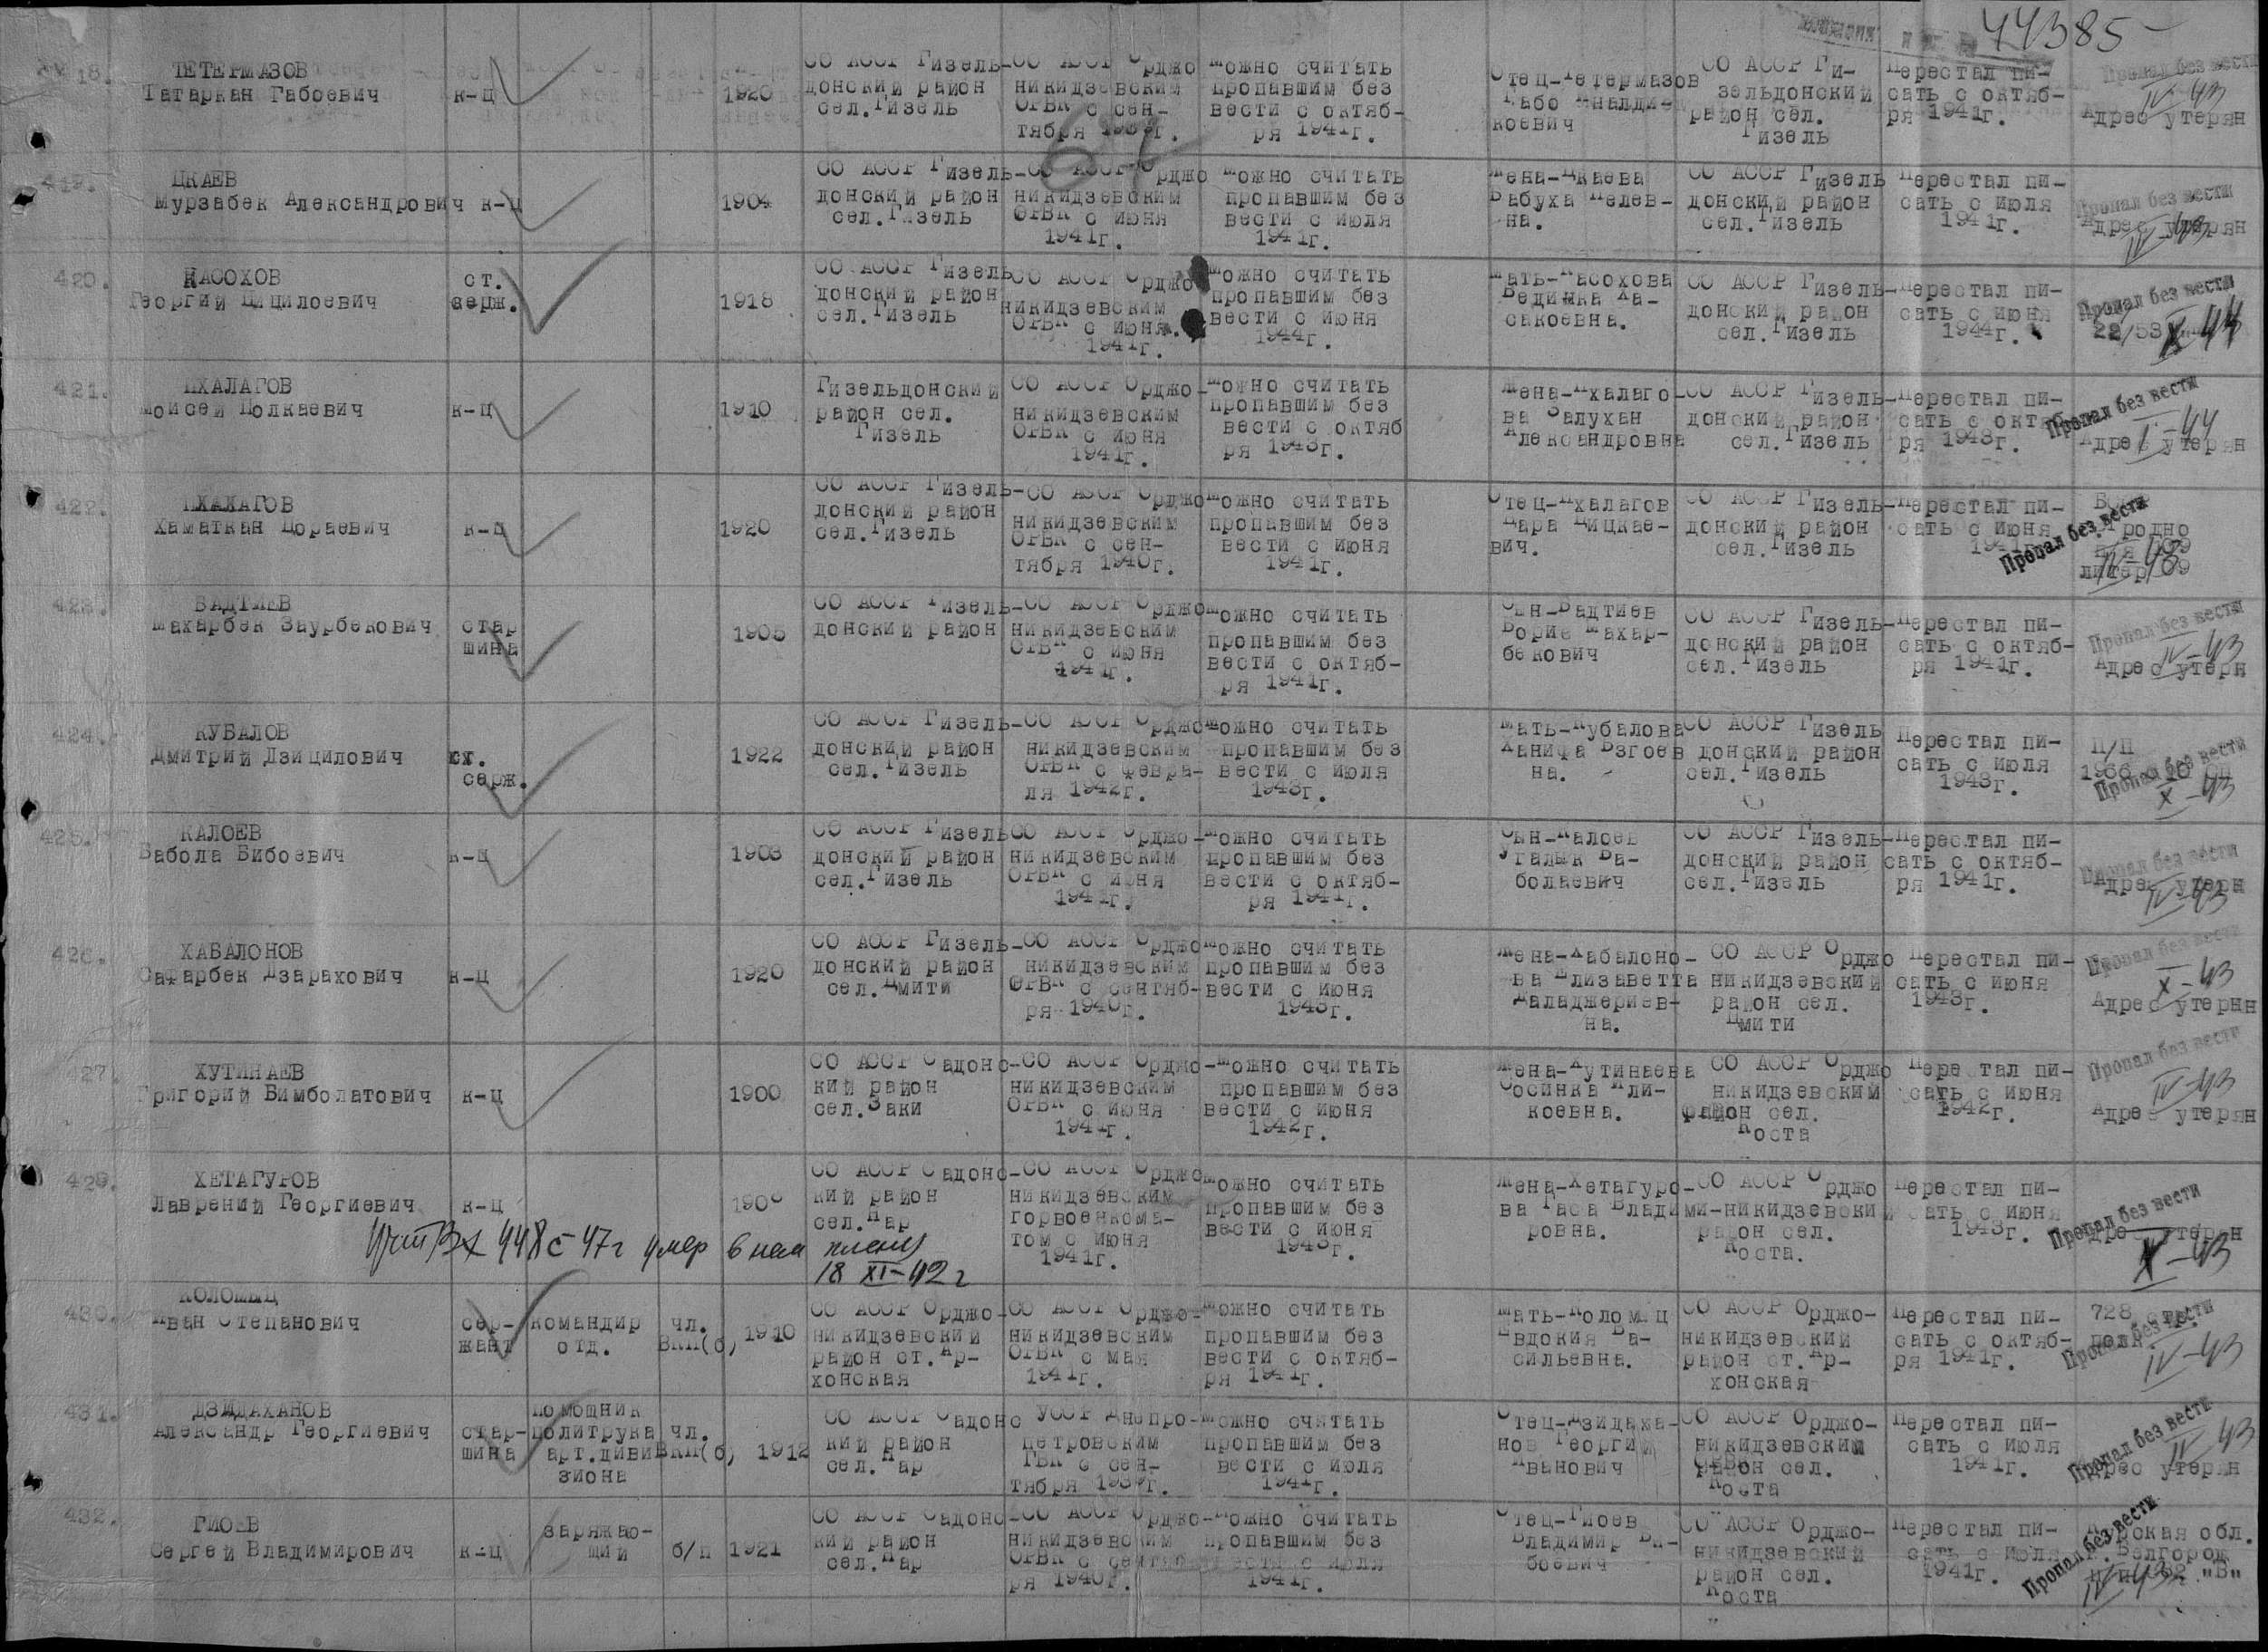 44385
418.
ТЕТЕРМАЗОВ
Татаркан Габоевич
к-ц
1920
СО АССР Гизель-
донский район
сел. Гизель
СО АССР Орджо
никидзевским
ОРВК с сен-
тября 1939г.
можно считать
пропавшим без
вести с октяб-
ря 1941г.
Отец-Тетермазов
Габо
коевич
СО АССР Ги-
зельдонский
район сел.
Гизель
перестал пи-
сать с октяб-
ря 1941г.
Пропал без вести
IV-43
Адрес утерян
419.
ЦКАЕВ
Мурзабек Александрович
к-ц
1904
СО АССР Гизель-
донский район
сел. Гизель
СО АССР Орджо
никидзевским
ОРВК с июня
1941г.
можно считать
пропавшим без
вести с июля
1941г.
Жена-Цкаева
Бабуха
на.
СО АССР Гизель
донский район
сел. Гизель
перестал пи-
сать с июля
1941г.
Пропал без вести
Адрес утерян
IV-43
420.
КАСОХОВ
Георгий Цицилоевич
ст.
серж.
1918
СО АССР Гизель
донский район
сел. Гизель
СО АССР Орджо
никидзевским
ОРВК с июня
1941г.
можно считать
пропавшим без
вести с июня
1944г.
Мать-Касохова
Ха-
сакоевна.
СО АССР Гизель-
донский район
сел. Гизель
перестал пи-
сать с июня
1944г.
Пропал без вести
X-44
421.
ПХАЛАГОВ
Моисей Цолкаевич
к-ц
1910
Гизельдонский
район сел.
Гизель
СО АССР Орджо-
никидзевским
ОРВК с июня
1941г.
можно считать
пропавшим без
вести с октяб
ря 1943г.
Жена-Пхалаго-
ва Залухан
Александровна
СО АССР Гизель-
донский район
сел. Гизель
перестал пи-
сать с октяб
ря 1943г.
Пропал без вести
I-44
Адрес утерян
422.
ПХАЛАГОВ
Хаматкан Цораевич
к-ц
1920
СО АССР Гизель-
донский район
сел. Гизель
СО АССР Орджо
никидзевским
ОРВК с сен-
тября 1940г.
можно считать
пропавшим без
вести с июня
1941г.
Отец-Пхалагов
Цара Цицкае-
вич.
СО АССР Гизель-
донский район
сел. Гизель
перестал пи-
сать с июня
1941г.
Пропал без вести
Гродно
IV-43
423.
БАДТИЕВ
Махарбек Заурбекович
стар
шина
1905
СО АССР Гизель-
донский район
СО АССР Орджо
никидзевским
ОРВК с июня
1941г.
можно считать
пропавшим без
вести с октяб-
ря 1941г.
Сын-Бадтиев
Борис Махар-
бекович
СО АССР Гизель-
донский район
сел. Гизель
перестал пи-
сать с октяб-
ря 1941г.
Пропал без вести
IV-43
Адрес утерн
424.
КУБАЛОВ
Дмитрий Дзицилович
ст.
серж.
1922
СО АССР Гизель-
донский район
сел. Гизель
СО АССР Орджо
никидзевским
ОРВК с февра-
ля 1942г.
можно считать
пропавшим без
вести с июля
1943г.
Мать-Кубалова
Ханифа Бзгоев
на.
СО АССР Гизель
донский район
сел. Гизель
перестал пи-
сать с июля
1943г.
П/П
Пропал без вести
X-43
425.
КАЛОЕВ
Бабола Бибоевич
к-ц
1903
СО АССР Гизель
донский район
сел. Гизель
СО АССР Орджо-
никидзевским
ОРВК с июня
1941г.
можно считать
пропавшим без
вести с октяб-
ря 1941г.
Сын-Калоев
Угалык Ба-
болаевич
СО АССР Гизель-
донский район
сел. Гизель
перестал пи-
сать с октяб-
ря 1941г.
Пропал без вести
Адрес утерн
IV-43
426.
ХАБАЛОНОВ
Сафарбек Дзарахович
к-ц
1920
СО АССР Гизель-
донский район
сел. Цмити
СО АССР Орджо
никидзевским
ОРВК с сентяб-
ря 1940г.
можно считать
пропавшим без
вести с июня
1943г.
Жена-Хабалоно-
ва Елизаветта
Даладжериев-
на.
СО АССР Орджо
никидзевский
район сел.
Цмити
перестал пи-
сать с июня
1943г.
Пропал без вести
X-43
Адрес утерян
427.
ХУТИНАЕВ
Григорий Бимболатович
к-ц
1900
СО АССР Садонс-
кий район
сел. Заки
СО АССР Орджо-
никидзевским
ОРВК с июня
1941г.
можно считать
пропавшим без
вести с июня
1942г.
Жена-Хутинаева
Сосинка Или-
коевна.
СО АССР Орджо
никидзевский
район сел.
Коста
перестал пи-
сать с июня
1942г.
Пропал без вести
IV-43
Адрес утерян
429.
ХЕТАГУРОВ
Лаврений Георгиевич
к-ц
1900
СО АССР Садонс-
кий район
сел. Нар
СО АССР Орджо
никидзевским
горвоенкома-
том с июня
1941г.
можно считать
пропавшим без
вести с июня
1943г.
Жена-Хетагуро-
ва Гаса Владими-
ровна.
СО АССР Орджо
никидзевский
район сел.
Коста.
перестал пи-
сать с июня
1943г.
Пропал без вести
Адрес утерян
X-43
Вх 448с 47г умер в нем плену
18 XI-42г
430.
КОЛОМЫЦ
Иван Степанович
сер-
жант
командир
отд.
чл.
ВКП(б)
1910
СО АССР Орджо-
никидзевский
район ст. Ар-
хонская
СО АССР Орджо-
никидзевским
ОРВК с мая
1941г.
можно считать
пропавшим без
вести с октяб-
ря 1941г.
Мать-Коломыц
Евдокия Ва-
сильевна.
СО АССР Орджо-
никидзевский
район ст. Ар-
хонская
перестал пи-
сать с октяб-
ря 1941г.
728 стр.
полк
Пропал без вести
IV-43
431.
ДЗИДАХАНОВ
Александр Георгиевич
стар-
шина
помощник
политрука
арт.диви
зиона
чл.
ВКП(б)
1912
СО АССР Садонс
кий район
сел. Нар
УССР Днепро-
петровским
ГВК с сен-
тября 1939г.
можно считать
пропавшим без
вести с июля
1941г.
Отец-Дзидаха-
нов Георгий
Иванович
СО АССР Орджо-
никидзевский
район сел.
Коста
перестал пи-
сать с июля
1941г.
Пропал без вести
IV 43
Адрес утерян
432.
ГИОЕВ
Сергей Владимирович
к-ц
заряжаю-
щий
б/п
1921
СО АССР Садонс
кий район
сел. Нар
СО АССР Орджо-
никидзевским
ОРВК с сентяб
ря 1940г.
можно считать
пропавшим без
вести с июля
1941г.
Отец-Гиоев
Владимир Би-
боевич
СО АССР Орджо-
никидзевский
район сел.
Коста
перестал пи-
сать с июля
1941г.
Курская обл.
г. Белгород
"В"
Пропал без вести
IV-43